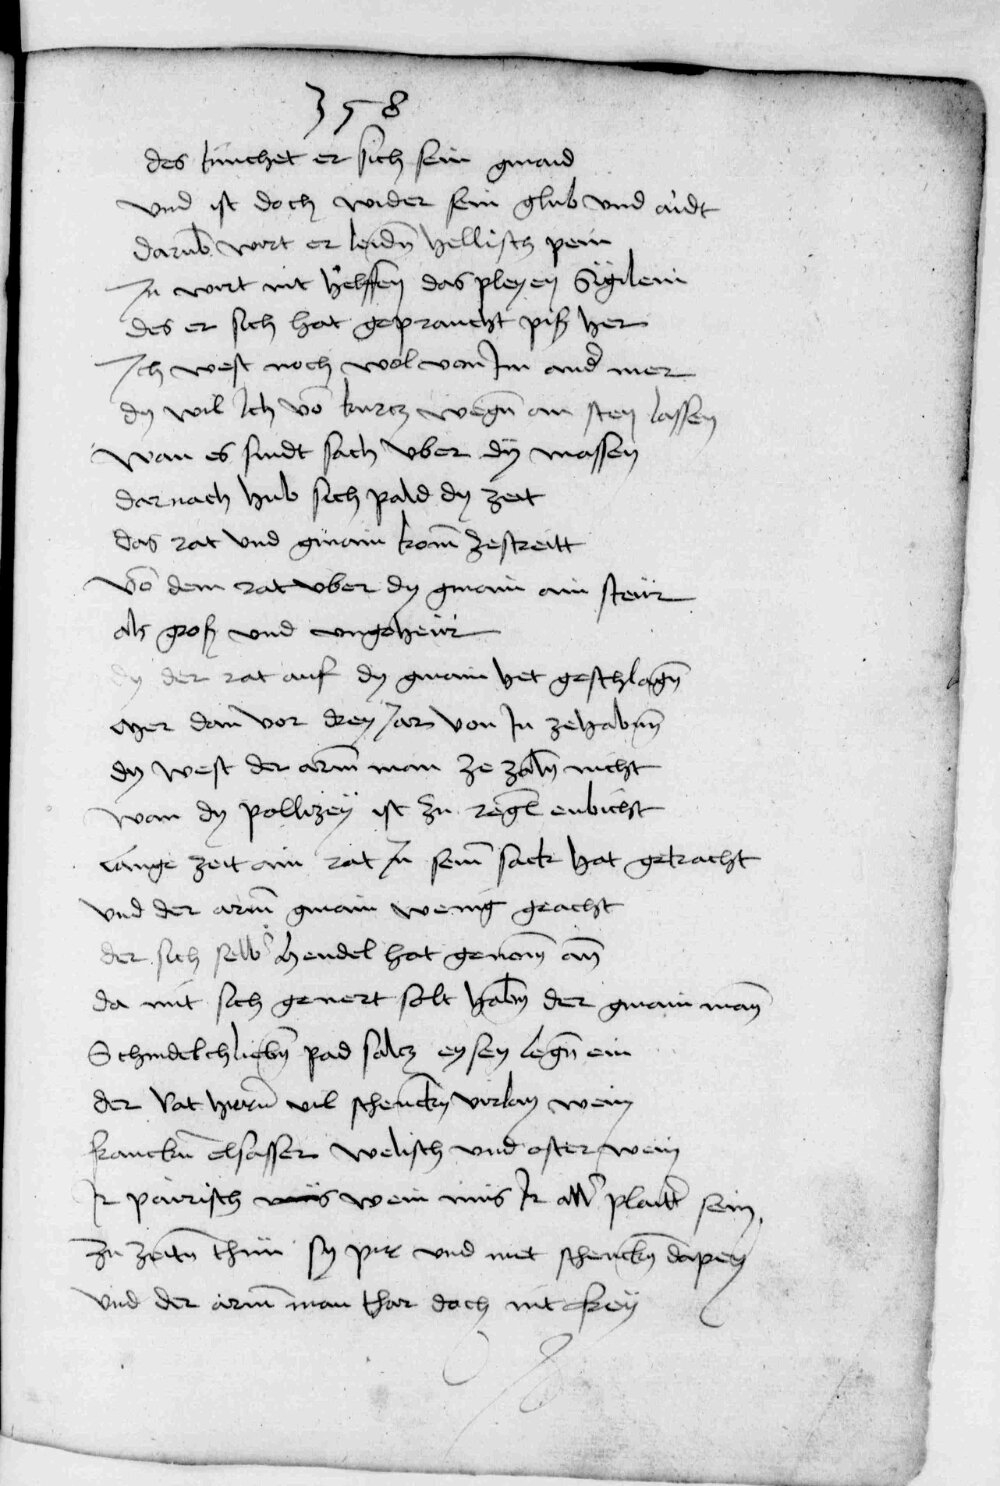 358
des kunchet er sich sein gmaid
vnd ist doch wider sein glub vnd aidt
darub wirt er leidn hellisch pein
In wirt nit helffen das pleyen Sigilein
des er sich hat gepraucht piß her
Ich west noch wol von Im and mer
dy wil Ich vo kurcz wegn an sten lassen
wan es sindt sach vber dy massen
dar nach hub sich pald dy zeit
das rat vnd gmain kom zestreitt
vo dem rat vber dy gmain ain steür
als groß vnd vngeheür
dy der rat auf dy gmain het geschlagn
mer dan vor drey Jar von In zehabmn
dy west der arm man ze zaln nicht
wan dy pollizey ist zu regl enbicht
lange zeit ain rat In seim sack hat getracht
vnd der arm gmain wenig geacht
der sich selbs hendel hat genom an
da mit sich genert solt habm der gmain man
Schindelchliebn pad salcz eysen legn ein
der Rat hern vil schenckn wein
franckn elsasser welisch vnd oster wein
Ir pairisch wein mus Ir all plaitt sein
Zu zeitn thun sy pir vnd met schenckn dapey
vnd der arm man thar doch nit frey